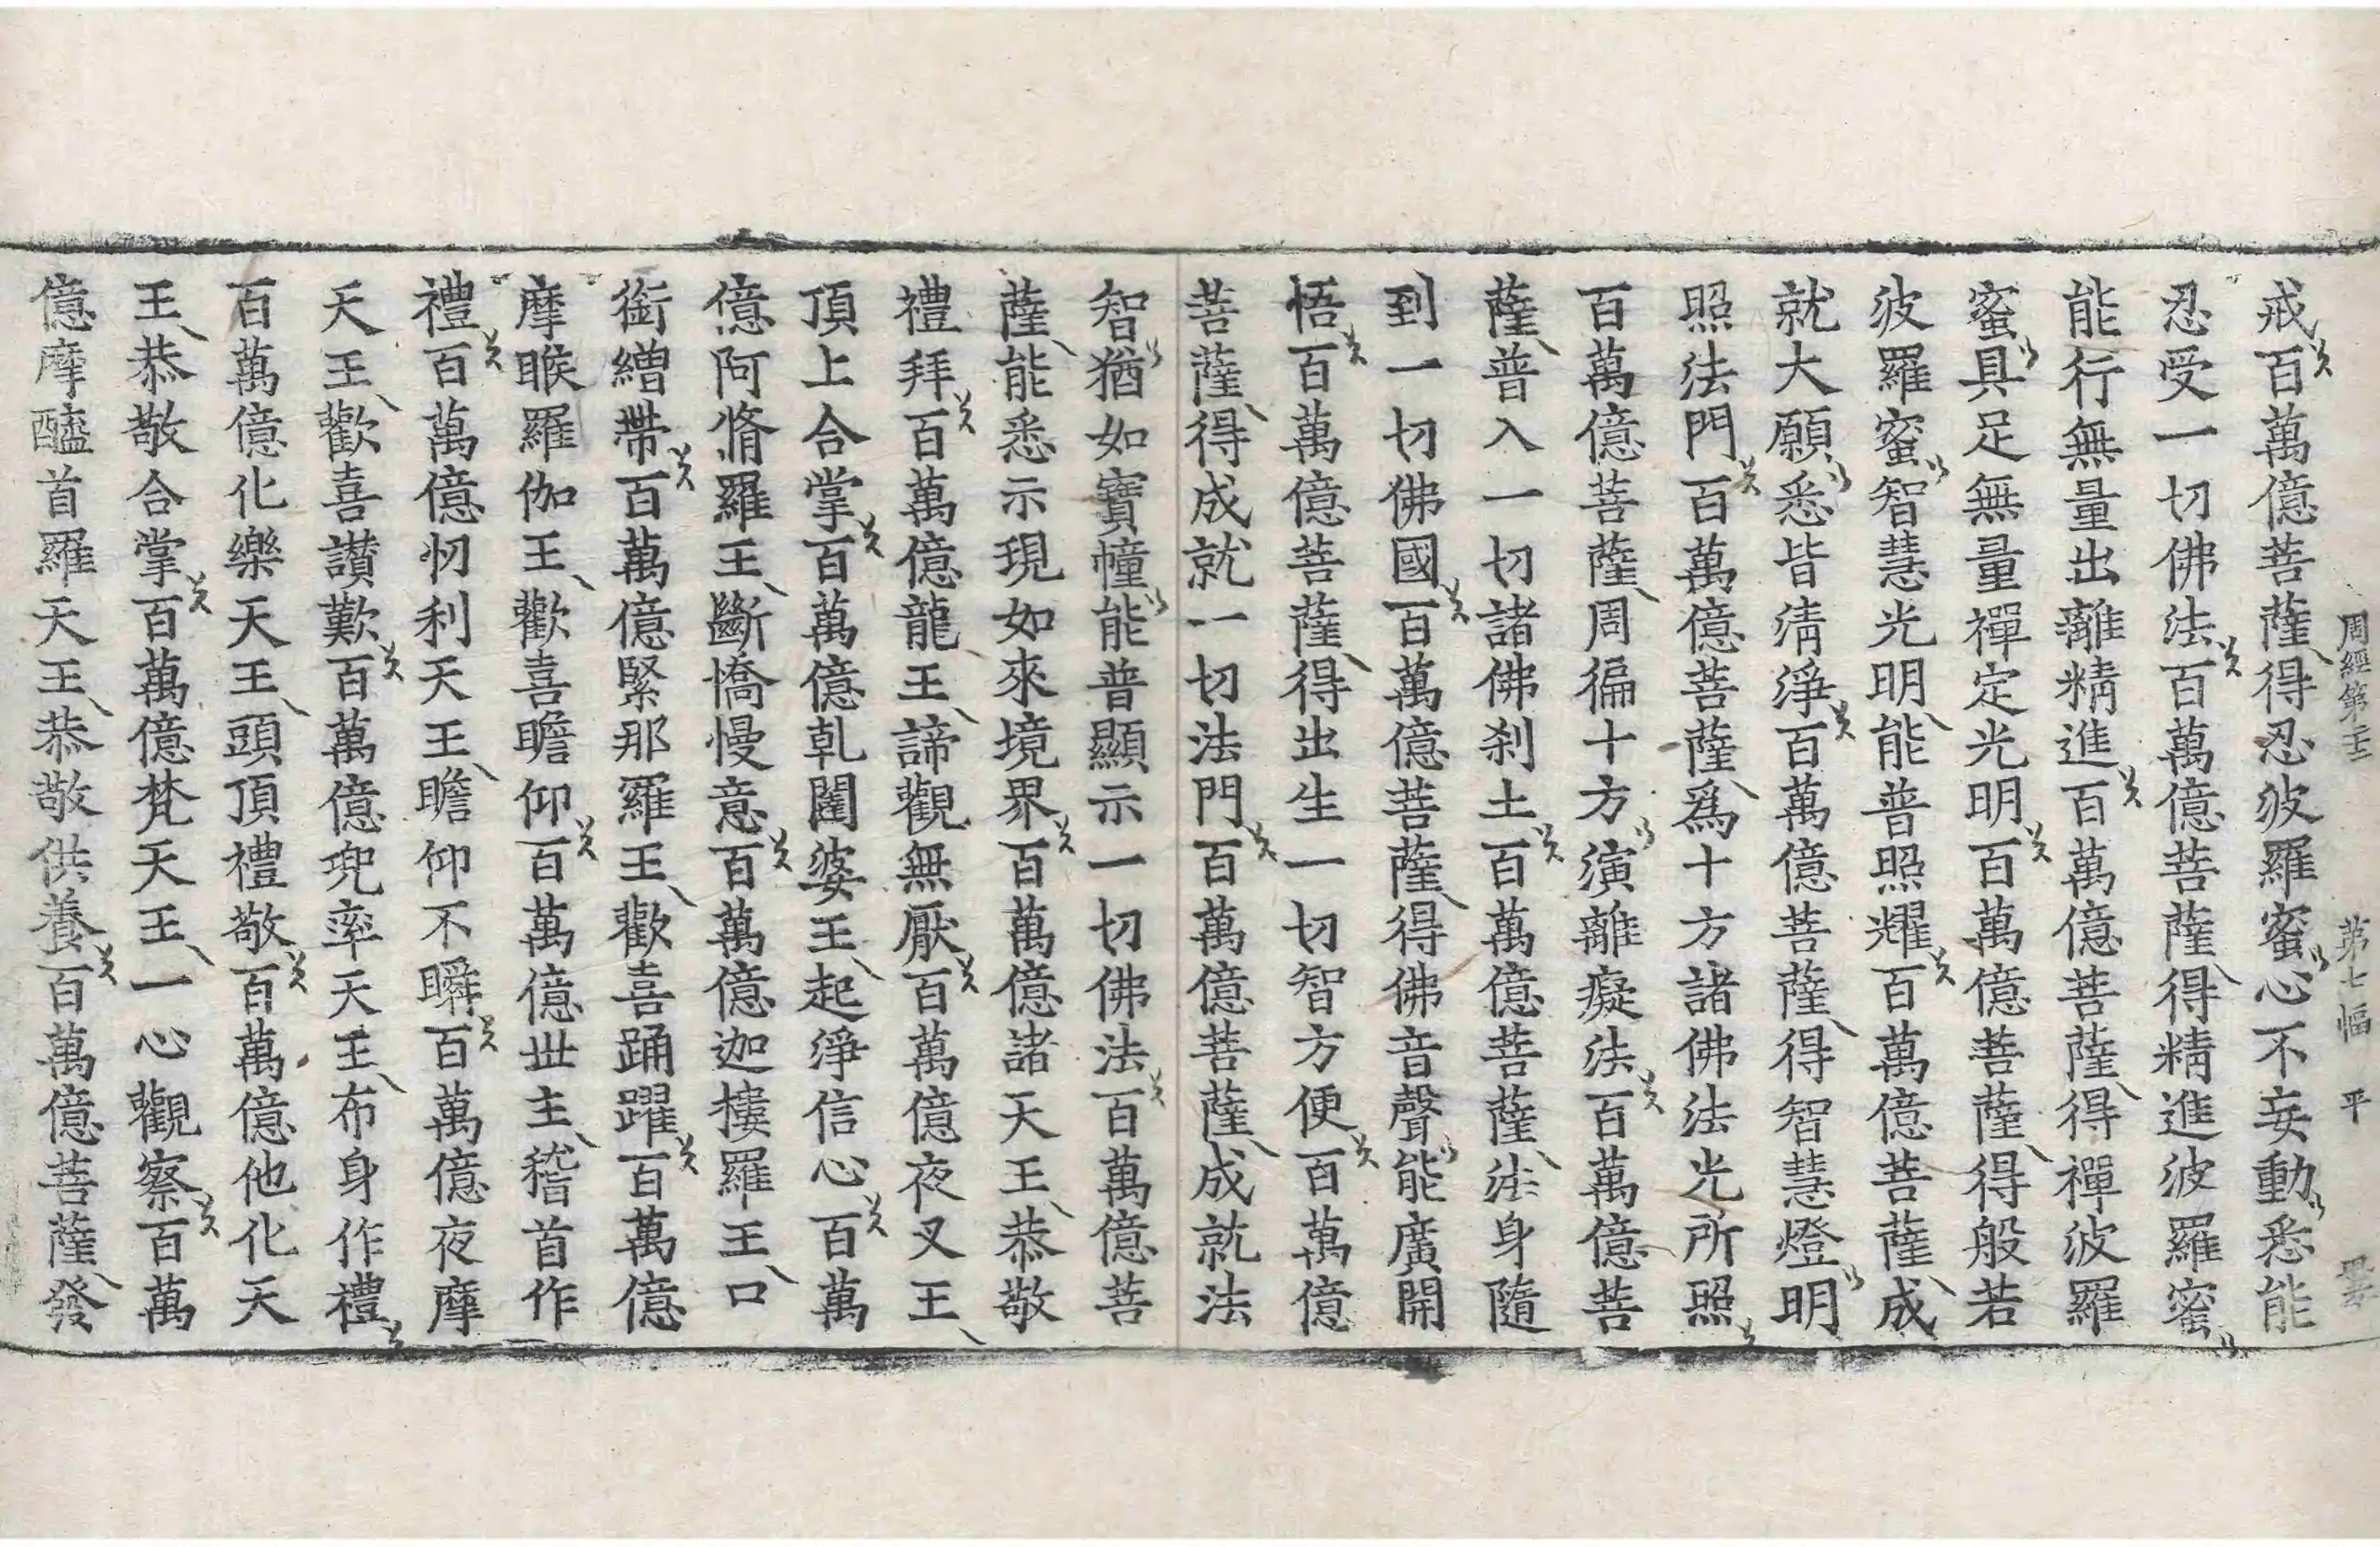 周經第二十二　第七幅　平
戒百萬億菩薩得忍波羅蜜心不妄動悉能
忍受一切佛法百萬億菩薩得精進波羅蜜
能行無量出離精進百萬億菩薩得禪波羅
蜜具足無量禪定光明百萬億菩薩得般若
波羅蜜智慧光明能普照耀百萬億菩薩成
就大願悉皆清淨百萬億菩薩得智慧燈明
照法門百萬億菩薩爲十方諸佛法光所照
百萬億菩薩周徧十方演離癡法百萬億菩
薩普入一切諸佛剎土百萬億菩薩法身隨
到一切佛國百萬億菩薩得佛音聲能廣開
悟百萬億菩薩得出生一切智方便百萬億
菩薩得成就一切法門百萬億菩薩成就法
智猶如寶幢能普顯示一切佛法百萬億菩
薩能悉示現如來境界百萬億諸天王恭敬
禮拜百萬億龍王諦觀無厭百萬億夜叉王
頂上合掌百萬億乹闥婆王起淨信心百萬
億阿脩羅王斷憍慢意百萬億迦樓羅王口
銜繒帶百萬億緊那羅王歡喜踊躍百萬億
摩睺羅伽王歡喜瞻仰百萬億世主稽首作
禮百萬億忉利天王瞻仰不瞬百萬億夜摩
天王歡喜讃歎百萬億兜率天王布身作禮
百萬億化樂天王頭頂禮敬百萬億他化天
王恭敬合掌百萬億梵天王一心觀察百萬
億摩醯首羅天王恭敬供養百萬億菩薩發